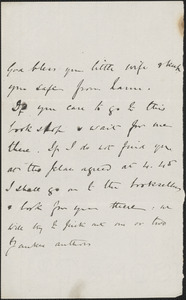 God bless you little wife & keep
you safe from harm.
If you care to go to this
book shop & wait for me
there. If I do not find you
at the place agreed at 4.45
I shall go on to the booksellers
& look for you there, we
will try to pick out one or two
Yankee authors